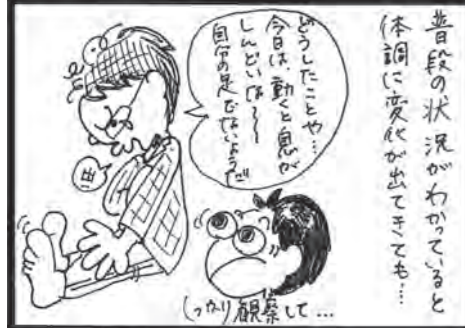 普段の状況がわかっていると
体調に変化が出てきても…
どうしたことや…
今日は、動くと息が
しんどいな〜〜
自分の足でないようだ
しっかり観察して…